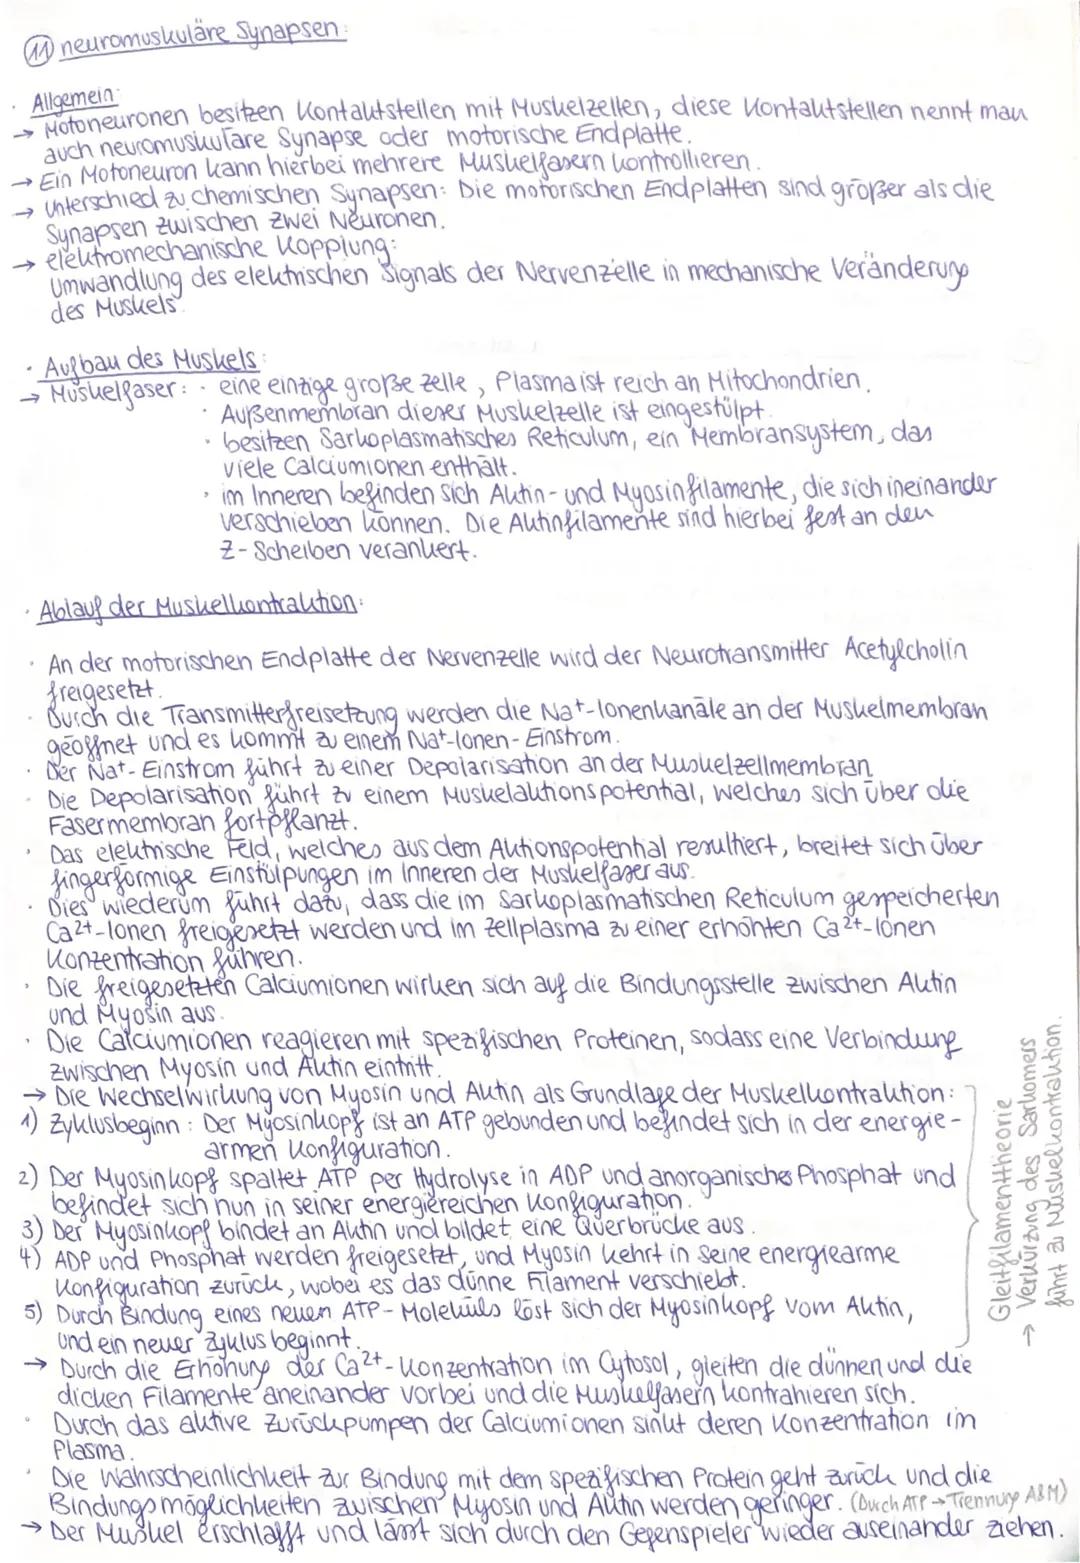 11 neuromuskuläre Synapsen:
· Allgemein:
→ Motoneuronen besitzen Kontaktstellen mit Muskelzellen, diese Kontaktstellen nennt man
auch neuromuskuläre Synapse oder motorische Endplatte.
→ Ein Motoneuron kann hierbei mehrere Muskelfasern kontrollieren.
→ Unterschied zu chemischen Synapsen: Die motorischen Endplatten sind größer als die
Synapsen zwischen zwei Neuronen.
→ elektromechanische Kopplung:
Umwandlung des elektrischen Signals der Nervenzelle in mechanische Veränderung
des Muskels
· Aufbau des Muskels:
→ Muskelfaser: · eine einzige große Zelle, Plasma ist reich an Mitochondrien.
· Außenmembran dieser Muskelzelle ist eingestülpt.
· besitzen Sarkoplasmatisches Reticulum, ein Membransystem, das
viele Calciumionen enthält.
· im Inneren befinden sich Aktin- und Myosinfilamente, die sich ineinander
verschieben können. Die Aktinfilamente sind hierbei fest an den
Z-Scheiben verankert.
· Ablauf der Muskelkontraktion:
· An der motorischen Endplatte der Nervenzelle wird der Neurotransmitter Acetylcholin
freigesetzt.
· Durch die Transmitterfreisetzung werden die Na⁺-Ionenkanäle an der Muskelmembran
geöffnet und es kommt zu einem Na⁺-Ionen-Einstrom.
· Der Na⁺-Einstrom führt zu einer Depolarisation an der Muskelzellmembran
· Die Depolarisation führt zu einem Muskelaktionspotential, welches sich über die
Fasermembran fortpflanzt.
· Das elektrische Feld, welches aus dem Aktionspotential resultiert, breitet sich über
fingerförmige Einstülpungen im Inneren der Muskelfaser aus.
· Dies wiederum führt dazu, dass die im Sarkoplasmatischen Reticulum gespeicherten
Ca²⁺-Ionen freigesetzt werden und im Zellplasma zu einer erhöhten Ca²⁺-Ionen
Konzentration führen.
· Die freigesetzten Calciumionen wirken sich auf die Bindungsstelle zwischen Aktin
und Myosin aus.
· Die Calciumionen reagieren mit spezifischen Proteinen, sodass eine Verbindung
zwischen Myosin und Aktin eintritt.
→ Die Wechselwirkung von Myosin und Aktin als Grundlage der Muskelkontraktion:
1) Zyklusbeginn: Der Myosinkopf ist an ATP gebunden und befindet sich in der energie-
armen Konfiguration.
2) Der Myosinkopf spaltet ATP per Hydrolyse in ADP und anorganisches Phosphat und
befindet sich nun in seiner energiereichen Konfiguration.
3) Der Myosinkopf bindet an Aktin und bildet eine Querbrücke aus.
4) ADP und Phosphat werden freigesetzt, und Myosin kehrt in seine energiearme
Konfiguration zurück, wobei es das dünne Filament verschiebt.
5) Durch Bindung eines neuen ATP-Moleküls löst sich der Myosinkopf vom Aktin,
und ein neuer Zyklus beginnt.
Gleitfilamenttheorie
→ Verkürzung des Sarkomers
führt zu Muskelkontraktion.
→ Durch die Erhöhung der Ca²⁺-Konzentration im Cytosol, gleiten die dünnen und die
dicken Filamente aneinander vorbei und die Muskelfasern kontrahieren sich.
· Durch das aktive Zurückpumpen der Calciumionen sinkt deren Konzentration im
Plasma.
· Die Wahrscheinlichkeit zur Bindung mit dem spezifischen Protein geht zurück und die
Bindungsmöglichkeiten zwischen Myosin und Aktin werden geringer. (Durch ATP → Trennung A&M)
→ Der Muskel erschlafft und lässt sich durch den Gegenspieler wieder auseinander ziehen.